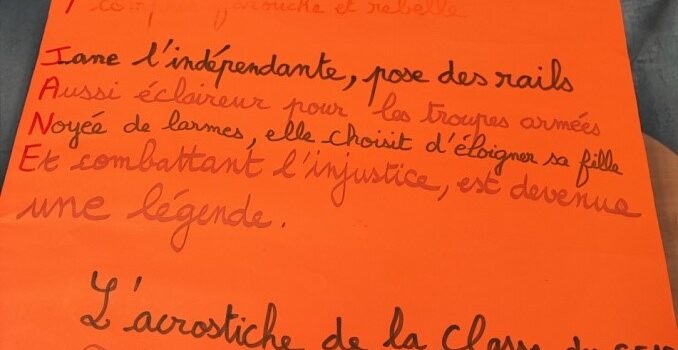 farouche et rebelle
Jane l'indépendante, pose des rails
Aussi éclaireur pour les troupes armées
Noyée de larmes, elle choisit d'éloigner sa fille
Et combattant l'injustice, est devenue
une légende.
L'acrostiche de la classe du